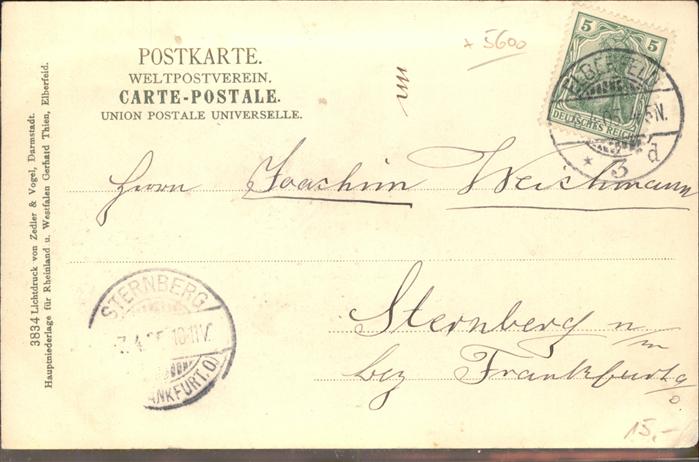 POSTKARTE.
WELTPOSTVEREIN.
CARTE-POSTALE.
UNION POSTALE UNIVERSELLE.
x 5600
5 5
DEUTSCHES REICH
ELBERFELD
5N.
* 3 d
Herrn Joachim Weishmann
Sternberg n/m
bez Frankfurt a/o.
STERNBERG
7.4. 10-11V.
ANKFURT. O)
15,-
3834 Lichtdruck von Zedler & Vogel, Darmstadt.
Hauptniederlage für Rheinland u. Westfalen Gerhard Thien, Elberfeld.